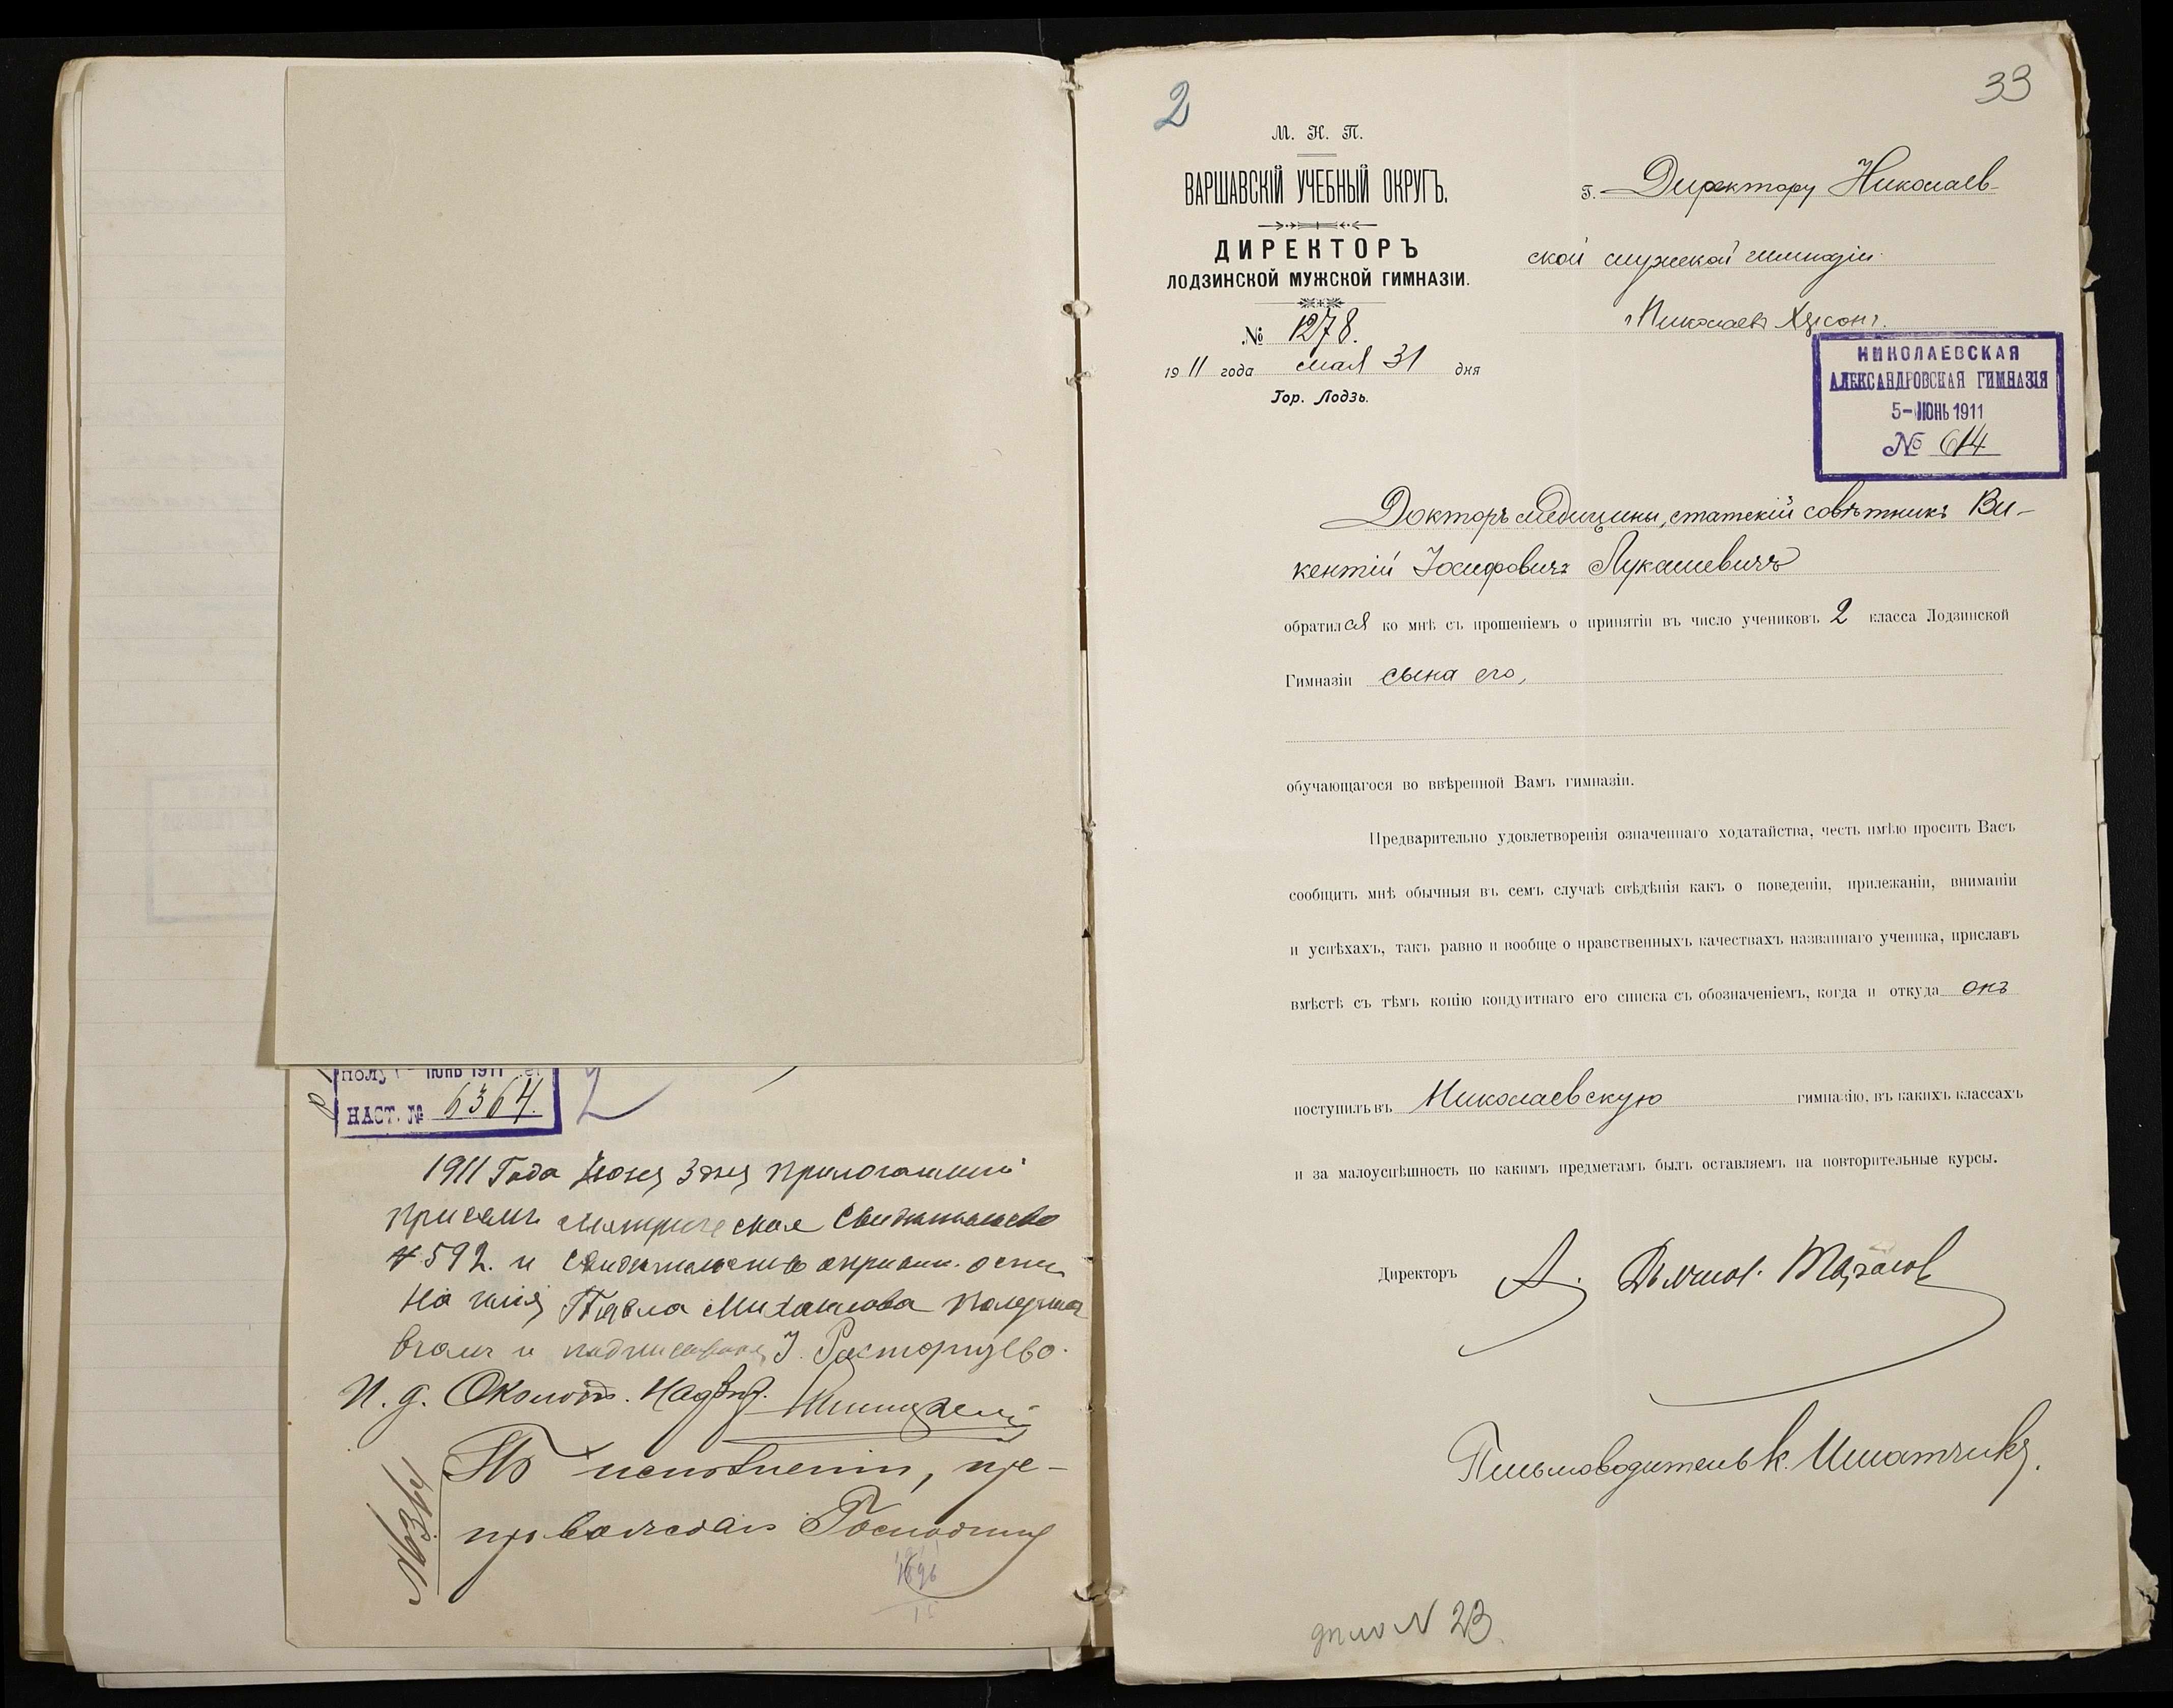 полу ІЮНЬ 1911
НАСТ. № 6364.
1911 Года Іюня 3 дня прилогаемый
при семъ метрическая Свидѣтельство
№ 592. и Свидѣтельство о оспы
на имя Павла Михайлова
и І. Расторгуево.
И. д. Околот. Надзир.
По исполненіи, пре-
провождаю Господину
№6364
1896
15
2
33
М. Н. П.
ВАРШАВСКІЙ УЧЕБНЫЙ ОКРУГЪ.
ДИРЕКТОРЪ
ЛОДЗИНСКОЙ МУЖСКОЙ ГИМНАЗІИ.
№ 1278.
1911 года мая 31 дня
Гор. Лодзь.
Г. Директору Николаев-
ской мужской гимназіи.
г. Николаевъ Херсон г.
НИКОЛАЕВСКАЯ
АЛЕКСАНДРОВСКАЯ ГИМНАЗІЯ
5- ІЮНЬ 1911
№ 614
Докторъ медицины, статскій совѣтникъ Ви-
кентій Іосифовичъ Лукашевичъ
обратился ко мнѣ съ прошеніемъ о принятіи въ число учениковъ 2 класса Лодзинской
Гимназіи сына его,
обучающагося во ввѣренной Вамъ гимназіи.
Предварительно удовлетворенія означеннаго ходатайства, честь имѣю просить Васъ
сообщить мнѣ обычныя въ семъ случаѣ свѣдѣнія какъ о поведеніи, прилежаніи, вниманіи
и успѣхахъ, такъ равно и вообще о нравственныхъ качествахъ названнаго ученика, приславъ
вмѣстѣ съ тѣмъ копію кондуитнаго его списка съ обозначеніемъ, когда и откуда онъ
поступилъ въ Николаевскую гимназію, въ какихъ классахъ
и за малоуспѣшность по какимъ предметамъ былъ оставляемъ на повторительные курсы.
Директоръ А.
Письмоводитель К.
дѣло N 23.